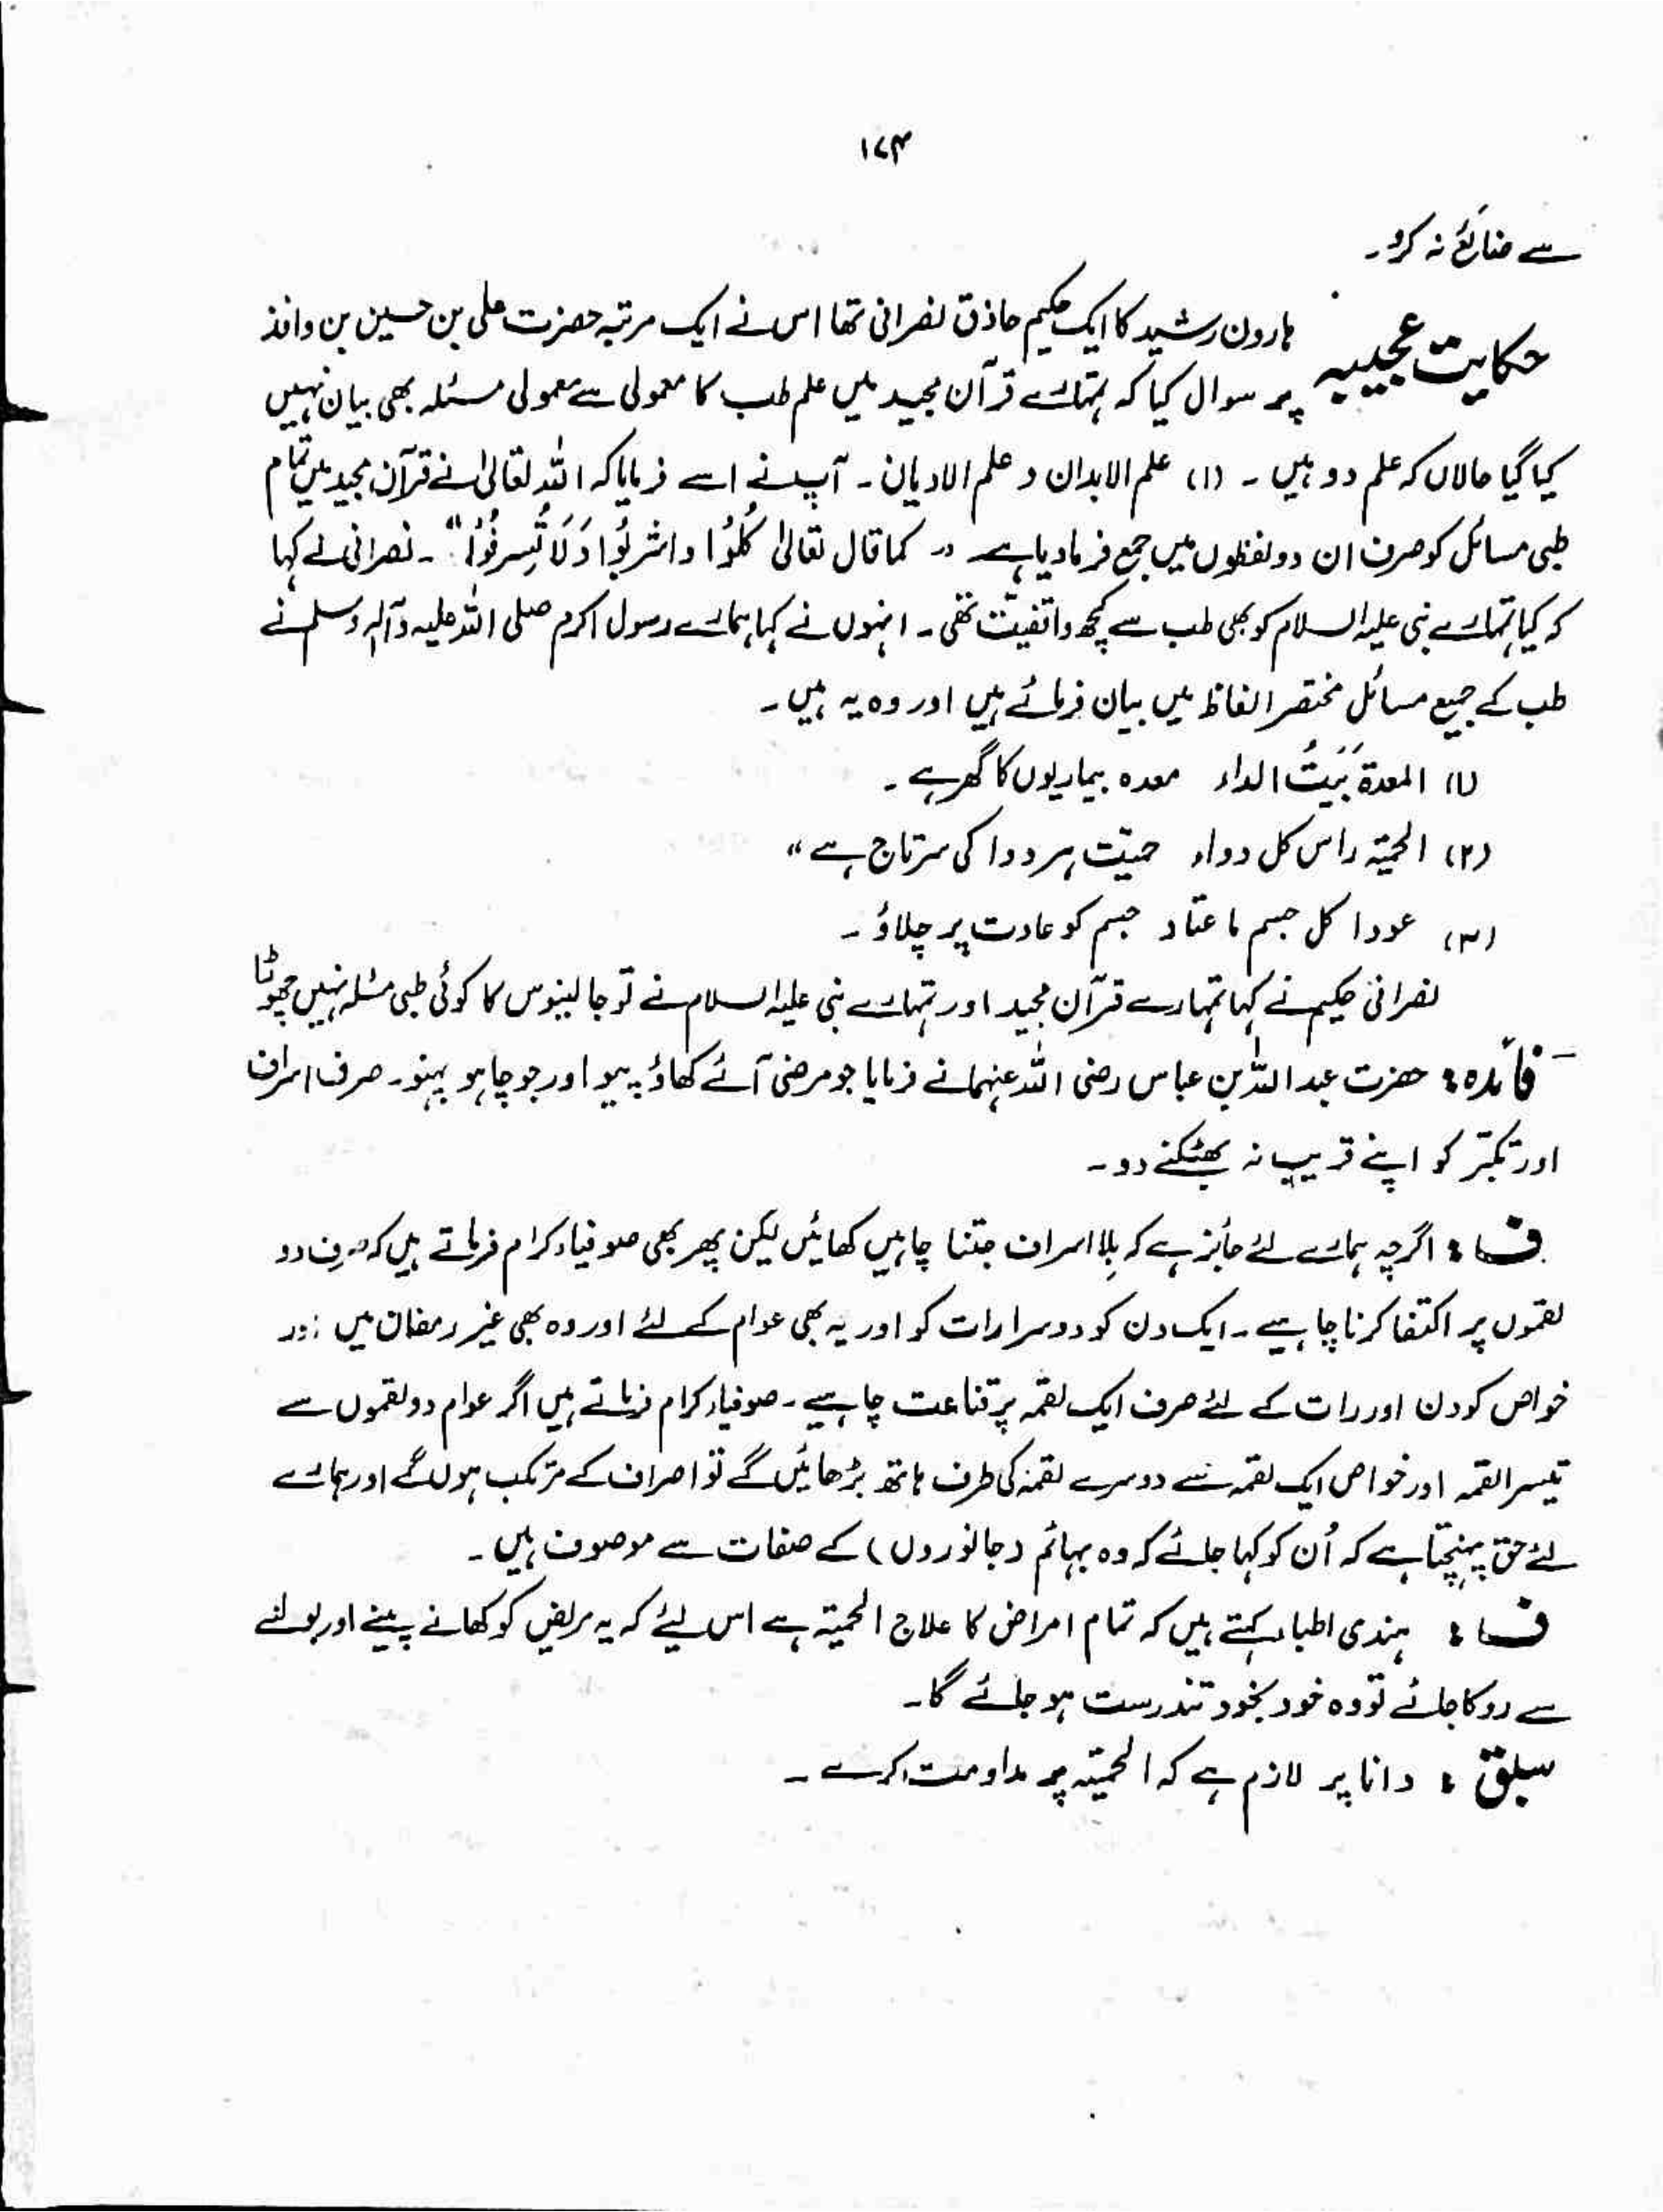 ۱۷۴
سے ضائع نہ کرو۔
حکایت عجیبہ ہارون رشید کا ایک حکیم حاذق نصرانی تھا اس نے ایک مرتبہ حضرت علی بن حسین بن واقد
پر سوال کیا کہ تمہارے قرآن مجید میں علم طب کا معمولی سے معمولی مسئلہ بھی بیان نہیں
کیا گیا حالاں کہ علم دو ہیں ۔ (۱) علم الابدان و علم الادیان ۔ آپ نے اسے فرمایا کہ اللہ تعالیٰ نے قرآن مجید میں تمام
طبی مسائل کو صرف ان دو لفظوں میں جمع فرما دیا ہے ،، کما قال تعالیٰ کُلُوْا واشربُوا وَلَا تُسرفُوْا"۔ نصرانی نے کہا
کہ کیا تمہارے نبی علیہ السلام کو بھی طب سے کچھ واقفیت تھی ۔ انہوں نے کہا ہمارے رسول اکرم صلی اللہ علیہ وآلہ وسلم نے
طب کے جمیع مسائل مختصر الفاظ میں بیان فرمائے ہیں اور وہ یہ ہیں ۔
(۱) المعدۃ بَیَتُ الداء معدہ بیماریوں کا گھر ہے ۔
(۲) الحمیّۃ راس کل دواء حمیّت ہر دوا کی سرتاج ہے "
(۳) عودا کل جسم ما عتاد جسم کو عادت پر چلاؤ ۔
نصرانی حکیم نے کہا تمہارے قرآن مجید اور تمہارے نبی علیہ السلام نے تو جالینوس کا کوئی طبی مسئلہ نہیں چھوڑا
فائدہ : حضرت عبد اللہ بن عباس رضی اللہ عنہما نے فرمایا جو مرضی آئے کھاؤ پیو اور جو چاہو پہنو۔ صرف اسراف
اور تکبّر کو اپنے قریب نہ بھٹکنے دو ۔
ف : اگرچہ ہمارے لئے جائز ہے کہ بلا اسراف جتنا چاہیں کھائیں لیکن پھر بھی صوفیاء کرام فرماتے ہیں کہ صرف دو
لقموں پر اکتفا کرنا چاہیے ۔ ایک دن کو دوسرا رات کو اور یہ بھی عوام کے لئے اور وہ بھی غیر رمضان میں اور
خواص کو دن اور رات کے لئے صرف ایک لقمہ پر قناعت چاہیے ۔ صوفیاء کرام فرماتے ہیں اگر عوام دو لقموں سے
تیسرا لقمہ اور خواص ایک لقمہ سے دوسرے لقمہ کی طرف ہاتھ بڑھائیں گے تو اصراف کے مرتکب ہوں گے اور ہمارے
لئے حق پہنچتا ہے کہ اُن کو کہا جائے کہ وہ بہائم (جانوروں) کے صفات سے موصوف ہیں ۔
ف : ہندی اطباء کہتے ہیں کہ تمام امراض کا علاج الحمیّۃ ہے اس لیئے کہ یہ مریض کو کھانے پینے اور بولنے
سے روکا جائے تو وہ خود بخود تندرست ہو جائے گا۔
سبق : دانا پر لازم ہے کہ الحمیّۃ پر مداومت کرے ۔